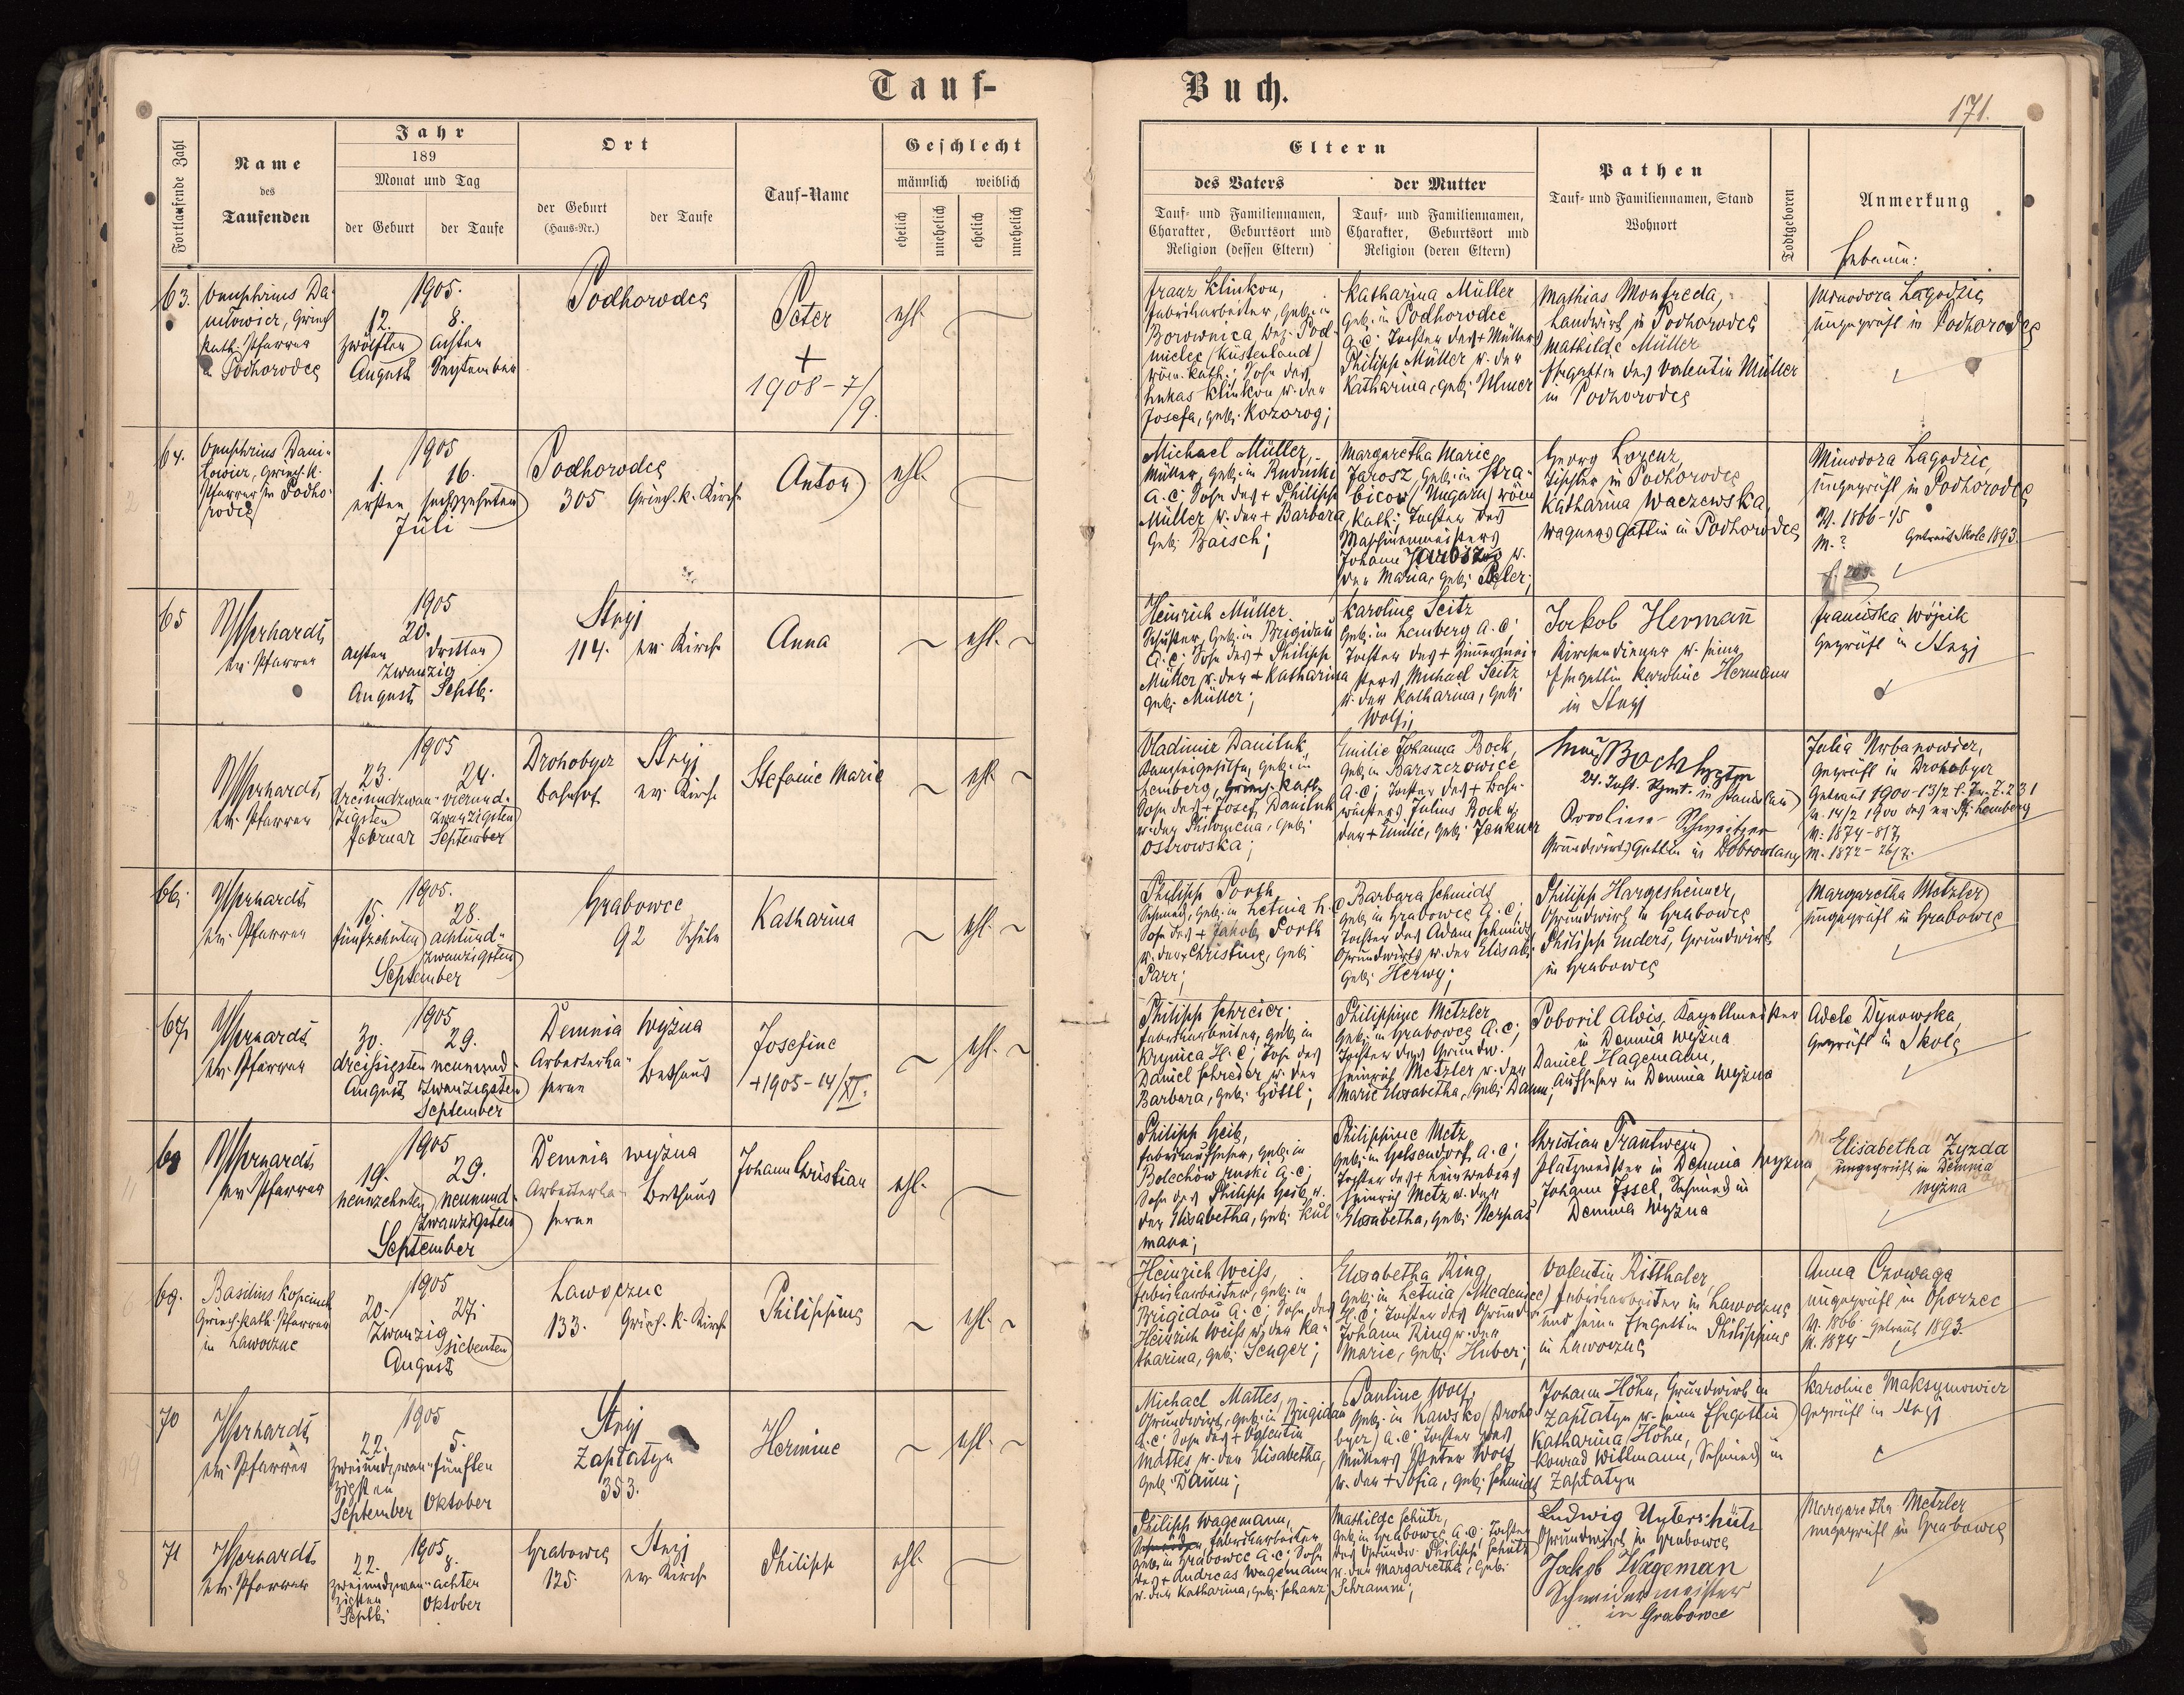 Tauf-
Buch.
171.
Fortlaufende Zahl
Name
des
Taufenden
Jahr
189
Monat und Tag
der Geburt
der Taufe
Ort
der Geburt
(Haus-Nr.)
der Taufe
Tauf-Name
Geschlecht
männlich
weiblich
ehelich
unehelich
ehelich
unehelich
Eltern
des Vaters
der Mutter
Tauf- und Familiennamen,
Charakter, Geburtsort und
Religion (dessen Eltern)
Tauf- und Familiennamen,
Charakter, Geburtsort und
Religion (deren Eltern)
Pathen
Tauf- und Familiennamen, Stand
Wohnort
Todtgeboren
Anmerkung
Hebamme:
63.
Onuphrius Da-
niłowicz, Griech.
kath. Pfarrer
in Podhorodce
1905.
12.
zwölften
August
8.
achten
September
Podhorodce
Peter
+
1908-7/9.
ehl.
Franz Klinkon,
Fabriksarbeiter, geb. in
Borownica, Bez. Pod-
melec (Küstenland)
röm. kath.; Sohn des
Lukas Klinkon u. der
Josefa, geb. Kozorog;
Katharina Müller
geb. in Podhorodce
A. C. Tochter des + Müllers
Philipp Müller u. der
Katharina, geb. Ulmer
Mathias Monfreda,
Landwirt in Podhorodce
Mathilde Müller
Ehegattin des Valentin Müller
in Podhorodce
Minodora Łagodzic
ungeprüft in Podhorodce
64.
Onuphrius Dani-
łowicz, Griech. k.
Pfarrer in Podho-
rodce
1905
1.
ersten
16.
sechszehnten
Juli
Podhorodce
305
Griech. k. Kirche
Anton
ehl.
Michael Müller,
Müller, geb. in Rudniki
A. C. Sohn des + Philipp
Müller u. der + Barbara
geb. Baisch;
Margaretha Marie
Jarosz, geb. in Stra-
bicow (Ungarn) röm.
kath.; Tochter des
Maschinenmeisters
Johann Jarosz u.
der Maria, geb. Peler;
Georg Lorenz,
Tischler in Podhorodce
Katharina Waczewska,
Wagners Gattin in Podhorodce
Minodora Łagodzic,
ungeprüft in Podhorodce
V. 1866-4/5
M. ?
Getraut Skole 1893.
65
WHerhardt
ev. Pfarrer
1905
20.
achten dritten
Zwanzig
August Septb.
Stryj
114.
ev. Kirche
Anna
ehl.
Heinrich Müller
Schuster, geb. in Brigidau
A. C.; Sohn des + Philipp
Müller u. der + Katharina
geb. Müller;
Karoline Seitz
geb. in Lemberg A. C;
Tochter des + Zimmermei-
sters Michael Seitz
u. der Katharina, geb.
Wolf;
Jakob Hermañ
Kirchendiener u. seine
Ehegattin Karoline Hermann
in Stryj
Franciska Wójcik
geprüft in Stryj
WHerhardt
ev. Pfarrer
1905
23.
dreiundzwan-
zigsten
Februar
24.
vierund-
zwanzigsten
September
Drohobycz
Bahnhof
Stryj
ev. Kirche
Stefanie Marie
ehl.
Vladimir Daniluk,
Kanzleigehilfe, geb. in
Lemberg, Griech. kath.
Sohn des + Josef Daniluk
u. der Philomena, geb.
Ostrowska;
Emilie Johanna Bock,
geb. in Barszczowice
A. C; Tochter des + Bahn-
wächters Julius Bock u.
der + Emilie, geb. Jenkner
24. Inft. Rgmt. in Stanislau
Grundwirts Gattin in Dobrowlany
Julia Urbanowicz,
geprüft in Drohobycz
Getraut 1900-13/2
V. 1874-8/7
M. 1872-26/7.
66.
WHerhardt
ev. Pfarrer
1905.
15.
fünfzehnten
28.
achtund-
zwanzigsten
September
Grabowce
92
Schule
Katharina
ehl.
Philipp Porth
Schmied, geb. in Letnia H. C
Sohn des + Jakob Porth
u. der Christine, geb.
Parr;
Barbara Schmidt
geb. in Grabowce A. C;
Tochter des Adam Schmidt
Grundwirts u. der Elisab.
geb. Herwy;
Philipp Hargesheimer,
Grundwirt in Grabowce
Philipp Enders, Grundwirt
in Grabowce
Margaretha Metzler
ungeprüft in Grabowce
67.
WHerhardt
ev. Pfarrer
1905
30.
dreissigsten
August
29.
neunund-
zwanzigsten
September
Demnia wyżna
Arbeiterka-
serne
Bethaus
Josefine
+1905-14/XI.
ehl.
Philipp Schreier
Fabriksarbeiter, geb. in
Krynica H. C; Sohn des
Daniel Schreier u. der
Barbara, geb. Göttl;
Philippine Metzler
geb. in Grabowce A. C;
Tochter des Grundw.
Heinrich Metzler u. der
Marie Elisabetha, geb. Daum;
Poboril Alois, Kapellmeister
in Demnia wyżna
Daniel Hagemann,
Aufseher in Demnia wyżna
Adele Dynowska,
geprüft in Skole
68
WHerhardt
ev. Pfarrer
1905
19.
neunzehnten
29.
neunund-
zwanzigsten
September
Demnia wyżna
Arbeiterka-
serne
Bethaus
Johann Christian
ehl.
Philipp Geib,
Fabriksaufseher, geb. in
Bolechów ruski A. C;
Sohn des Philipp Geib u.
der Elisabetha, geb. Kul-
mann;
Philippine Metz
geb. in Gelsendorf, A. C;
Tochter des + Leinwebers
Heinrich Metz u. der
Elisabetha, geb. Nerpas
Christian Trantwein
Platzmeister in Demnia wyżna
Johann Issel, Schmied in
Demnia wyżna
Elisabetha Zyzda
ungeprüft in Demnia
wyżna
69.
Basilius Kopciuch
Griech. kath. Pfarrer
in Lawoczne
1905
20.
27.
Zwanzig
siebenten
August
Lawoczne
133.
Griech. k. Kirche
Philippine
ehl.
Heinrich Weiss,
Fabriksarbeiter, geb. in
Brigidau A. C; Sohn des
Heinrich Weiss u. der Ka-
tharina, geb. Senger;
Elisabetha Ring,
geb. in Letnia (Medenice)
H. C; Tochter des Grundw.
Johann Ring u. der
Marie, geb. Huber;
Valentin Ritthaler
Fabriksarbeiter in Lawoczne
und seine Ehegattin Philippine
in Lawoczne
Anna Czowaga
ungeprüft in Oporzec
V. 1866. Getraut 1893.
M. 1874
70
WHerhardt
ev. Pfarrer
1905
22.
zweiundzwan-
zigsten
September
5.
fünften
Oktober
Stryj
Zapłatyn
353.
Hermine
ehl.
Michael Mattes,
Grundwirt, geb. in Brigidau
A. C. Sohn des + Valentin
Mattes u. der Elisabetha,
geb. Daum;
Pauline Wolf,
geb. in Kawsko (Droho-
bycz) A. C. Tochter des
Müllers Peter Wolf
u. der + Sofia, geb. Schmidt
Johann Höhn, Grundwirt in
Zapłatyn u. seine Ehegattin
Katharina Höhn,
Konrad Wittmann, Schmied in
Zapłatyn
Karoline Maksymowicz
geprüft in Stryj
71
WHerhardt
ev. Pfarrer
1905.
22.
zweiundzwan-
zigsten
Septb.
8.
achten
Oktober
Grabowce
125.
Stryj
ev. Kirche
Philipp
ehl.
Philipp Wagemann,
Fabriksarbeiter
geb. in Grabowce A. C; Sohn
des + Andreas Wagemann
u. der Katharina, geb. Schanz;
Mathilde Schütz,
geb. in Grabowce A. C; Tochter
des Grundw. Philipp Schütz
u. der Margaretha, geb.
Schramm;
Ludwig Unterschütz
Grundwirt in Grabowce
Jakob Wageman
Schneidermeister
in Grabowce
Margaretha Metzler
ungeprüft in Grabowce